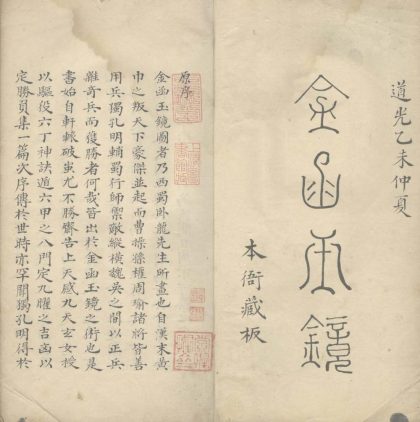 道光乙未仲夏
金函玉鏡
本衙藏板
原序
金函玉鏡圖者乃西蜀臥龍先生所畫也自漢末黃
巾之叛天下豪傑並起而曹操孫權周瑜諸將皆善
用兵獨孔明輔蜀行師禦敵縱橫魏吳之間以正兵
雜奇兵而獲勝者何哉皆出於金函玉鏡之術也是
書始自軒轅破蚩尤不勝齋告上天感九天玄女授
以驅役六丁神訣遁六甲之八門定九曜之吉凶以
定勝負集一篇次序傳於世時亦罕聞獨孔明得於